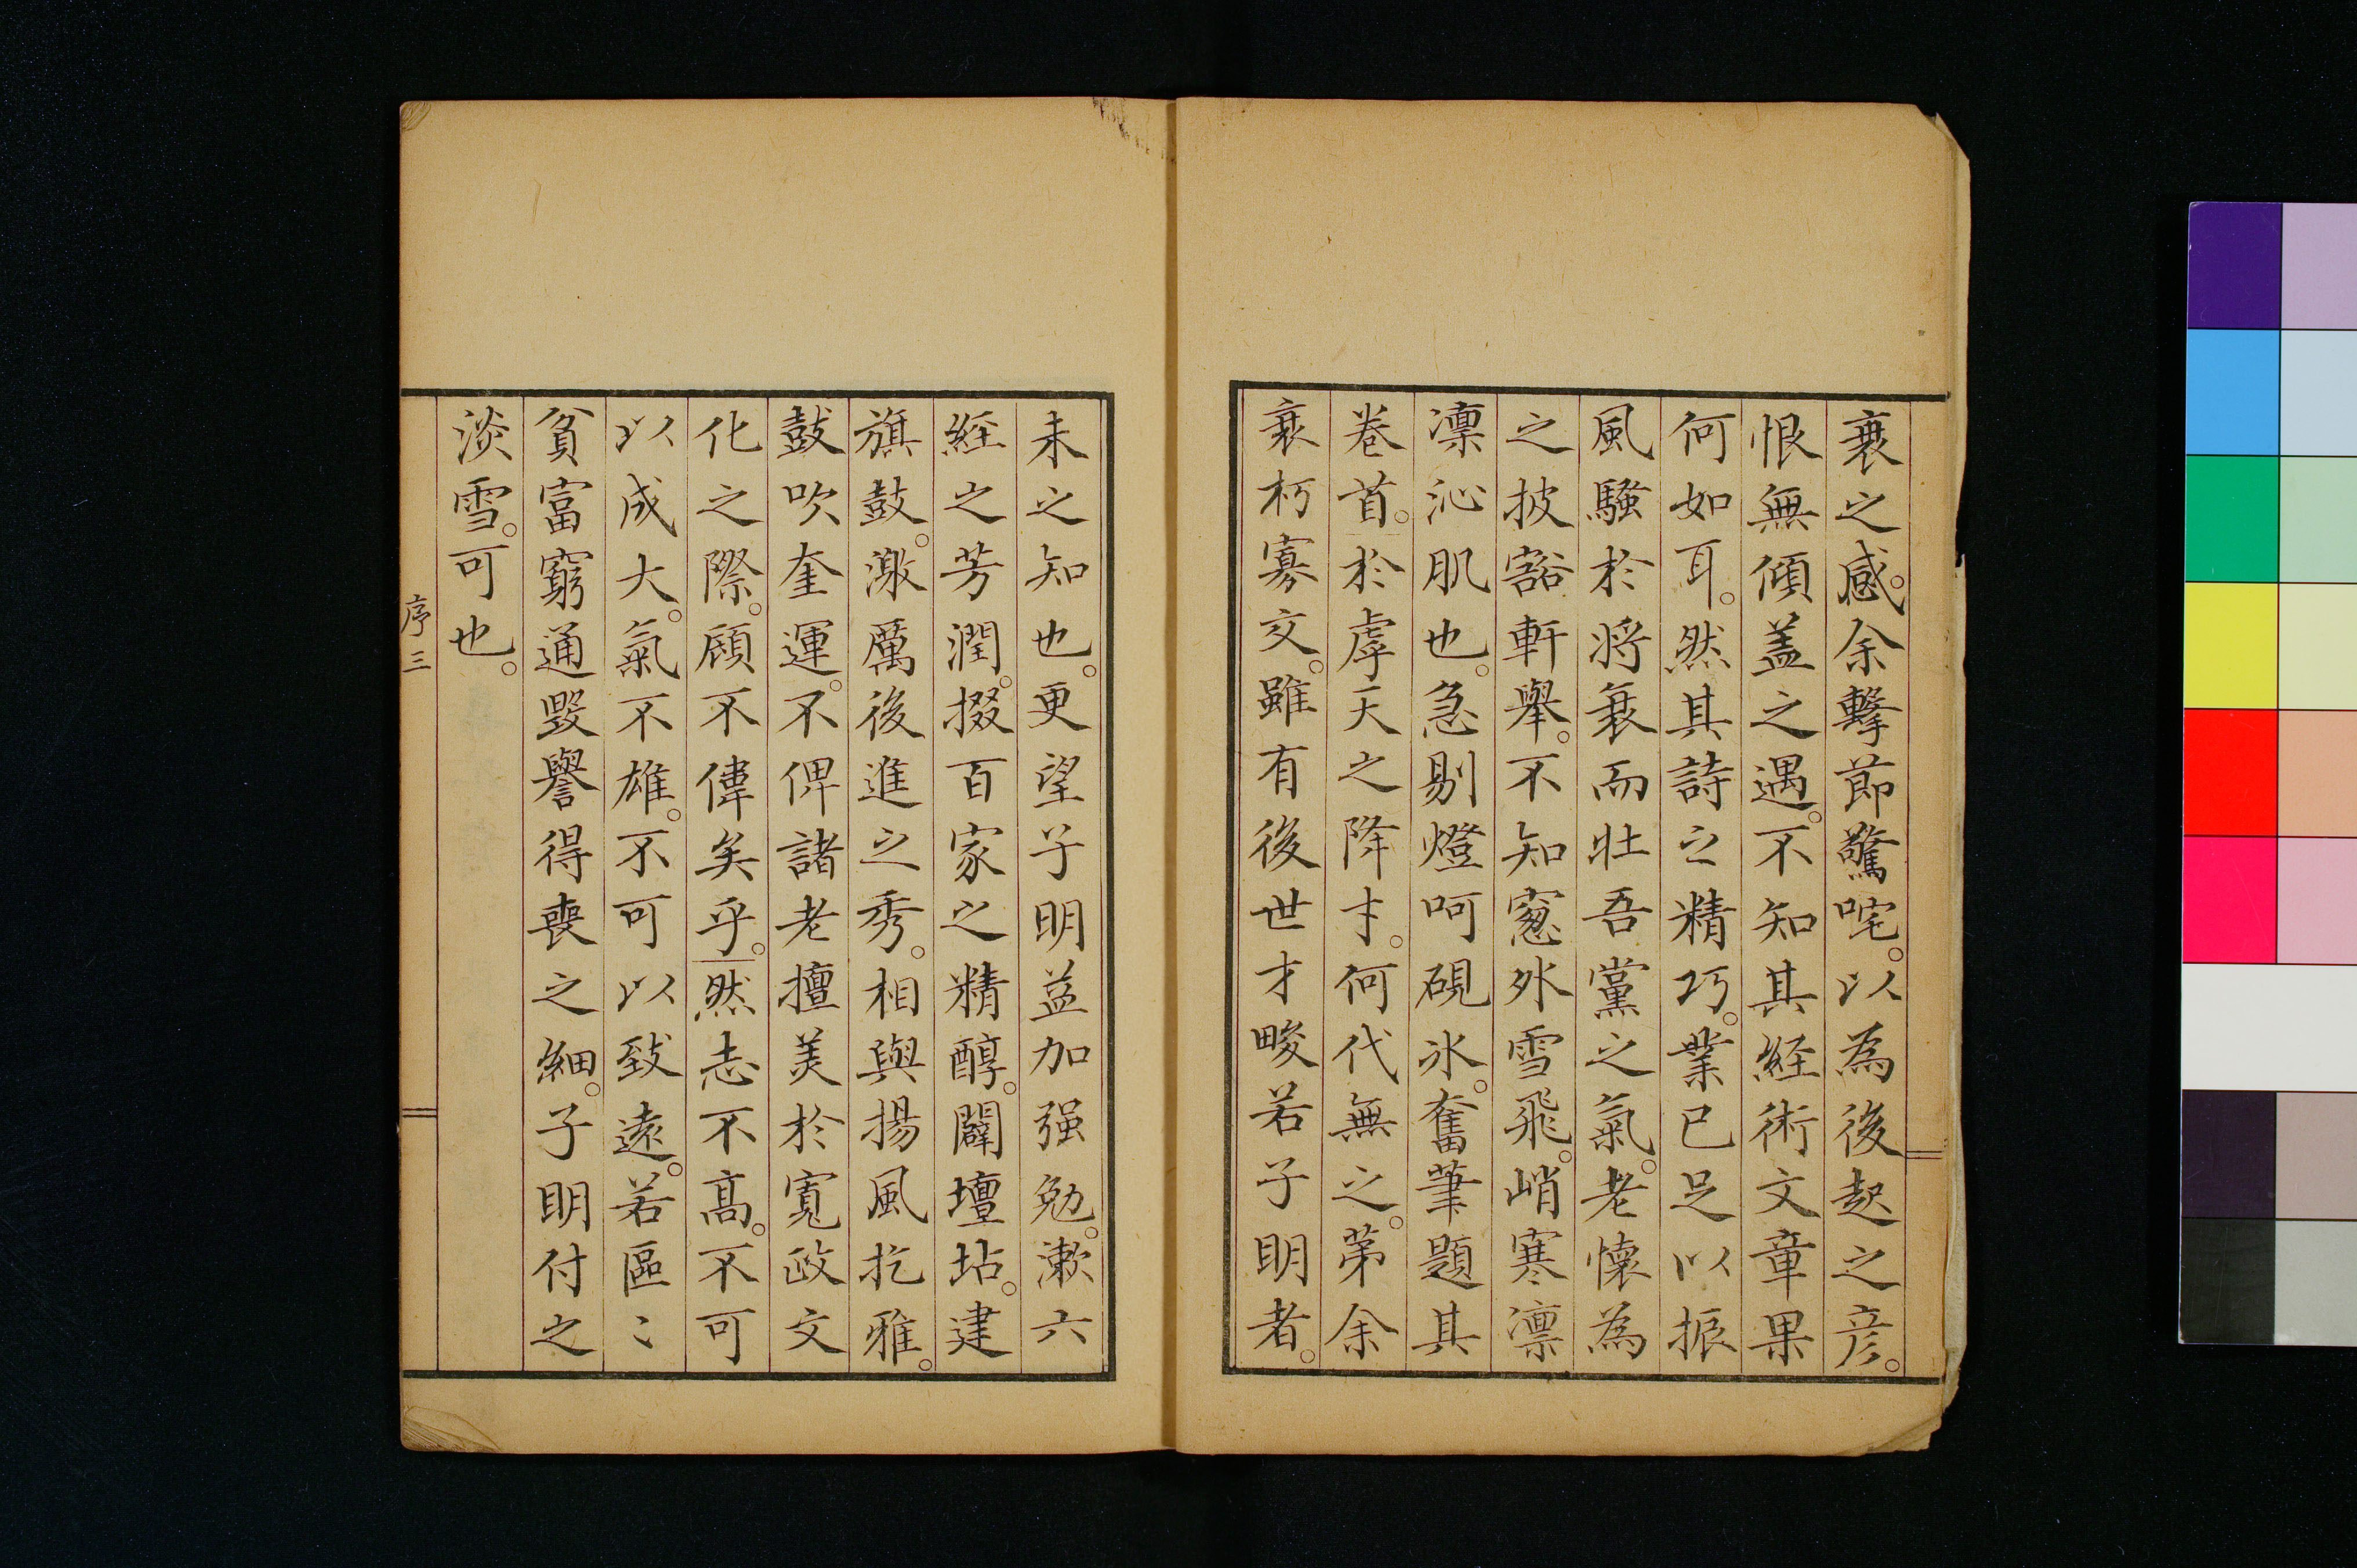 衰之感。余擊節驚咤。以為後起之彦。
恨無傾盖之遇。不知其経術文章果
何如耳。然其詩之精巧。業已足以振
風騷於將衰而壮吾黨之氣。老懷為
之披豁軒舉。不知窓外雪飛。峭寒凛
凛沁肌也。急剔燈呵硯氷。奮筆題其
卷首。於虖天之降才。何代無之。苐余
衰朽寡交。雖有後世才畯若子明者。
未之知也。更望子明益加强勉。漱六
経之芳潤。掇百家之精醇。闢壇坫。建
旗鼓。激厲後進之秀。相與揚風扢雅。
鼓吹奎運。不俾諸老擅美於寬政文
化之際。顧不偉矣乎。然志不高。不可
以成大。氣不雄。不可以致遠。若區〻
貧富窮通毀譽得喪之細。子明付之
淡雪。可也。
序三